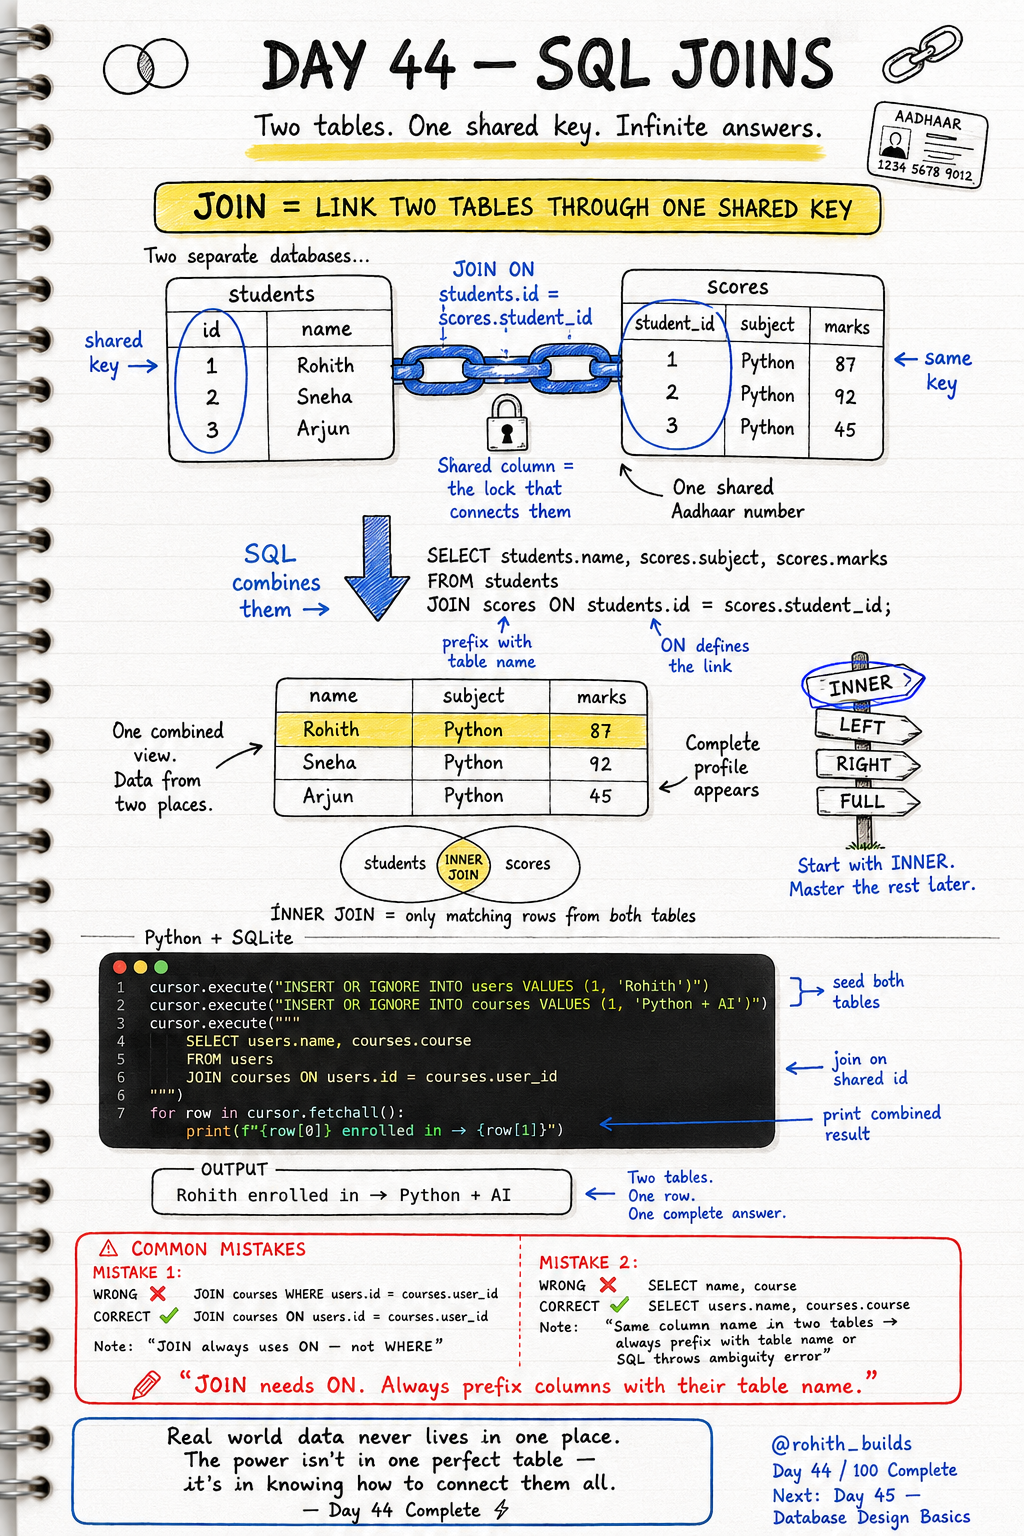 DAY 44 — SQL JOINS
Two tables. One shared key. Infinite answers.
AADHAAR
1234 5678 9012
JOIN = LINK TWO TABLES THROUGH ONE SHARED KEY
Two separate databases...
students
id name
1 Rohith
2 Sneha
3 Arjun
shared
key →
JOIN ON
students.id =
scores.student_id
Shared column =
the lock that
connects them
scores
student_id subject marks
1 Python 87
2 Python 92
3 Python 45
← same
key
One shared
Aadhaar number
SQL
combines
them →
SELECT students.name, scores.subject, scores.marks
FROM students
JOIN scores ON students.id = scores.student_id;
prefix with
table name
ON defines
the link
name subject marks
Rohith Python 87
Sneha Python 92
Arjun Python 45
One combined
view.
Data from
two places.
Complete
profile
appears
INNER
LEFT
RIGHT
FULL
Start with INNER.
Master the rest later.
students
INNER
JOIN
scores
INNER JOIN = only matching rows from both tables
Python + SQLite
1 cursor.execute("INSERT OR IGNORE INTO users VALUES (1, 'Rohith')")
2 cursor.execute("INSERT OR IGNORE INTO courses VALUES (1, 'Python + AI')")
3 cursor.execute("""
4 SELECT users.name, courses.course
5 FROM users
6 JOIN courses ON users.id = courses.user_id
6 """)
7 for row in cursor.fetchall():
print(f"{row[0]} enrolled in → {row[1]}")
seed both
tables
join on
shared id
print combined
result
OUTPUT
Rohith enrolled in → Python + AI
Two tables.
One row.
One complete answer.
COMMON MISTAKES
MISTAKE 1:
WRONG ❌ JOIN courses WHERE users.id = courses.user_id
CORRECT ✓ JOIN courses ON users.id = courses.user_id
Note: "JOIN always uses ON — not WHERE"
MISTAKE 2:
WRONG ❌ SELECT name, course
CORRECT ✓ SELECT users.name, courses.course
Note: "Same column name in two tables →
always prefix with table name or
SQL throws ambiguity error"
"JOIN needs ON. Always prefix columns with their table name."
Real world data never lives in one place.
The power isn't in one perfect table —
it's in knowing how to connect them all.
— Day 44 Complete ⚡
@rohith_builds
Day 44 / 100 Complete
Next: Day 45 —
Database Design Basics